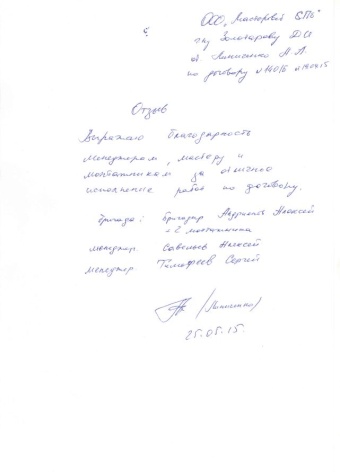 ООО "Мастеровой СПб"
г-ну Золотареву Д.А
от Линиченко Н.А.
по договору №
Отзыв
Выражаю благодарность
менеджерам, мастеру и
монтажникам за отлично
исполнение работ по договору.
Бригада: Бригадир Андрианов Алексей
+ 2 монтажника
менеджер. Савельев Алексей
менеджер Тимофеев Сергей
/Линиченко/
25.05.15.